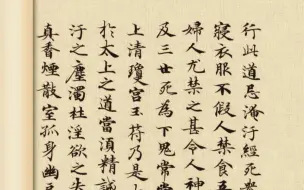 行此道忌淹汙經死
寢衣服不假人禁食五
婦人尤禁之甚令人神
及三世死為下鬼常當
上清瓊宮玉符乃是
於太上之道當須精誠
汙之塵濁杜淫欲之失
真香煙散室孤身幽